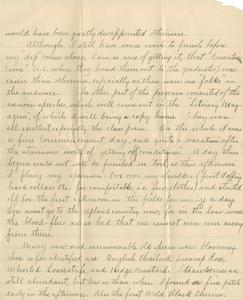 would have been greatly disappointed otherwise.
Although I still have some work to finish before
my dep comes along, I am so sure of getting it, that
time" (i.e. when they hand them out to the graduates) was
easier than otherwise, especially as there were no folks in
the audience. The other part of the program consisted of the
various speeches, which will come out in the "Literary Maga-
zine", of which I will bring a copy home. They were
all excellent especially the class poem. On the whole it was
a fine Commencement day, and quite a vacation after
the strenuous work of getting off conditions. A day thus
begun could not well be finished in toil, so this afternoon
I flung my specimen-box over my shoulder (first doffing
hard collars etc. for comfortable, i.e. fine clothes) and started
off for the first afternoon in the fields for many a day.
One must go to the Upland country now, for in the low woods
the Mosquitoes are so bad that one cannot never run away
from them.
Many new and innumerable old species were blooming
those so far identified are English Charlock, Swamp Rose,
Whorled Loosestrife, and Hedge Mustard. Strawberries are
still abundant, but less so than when I found one pint
early in the afternoon. Also the first Wild Black Cherries,